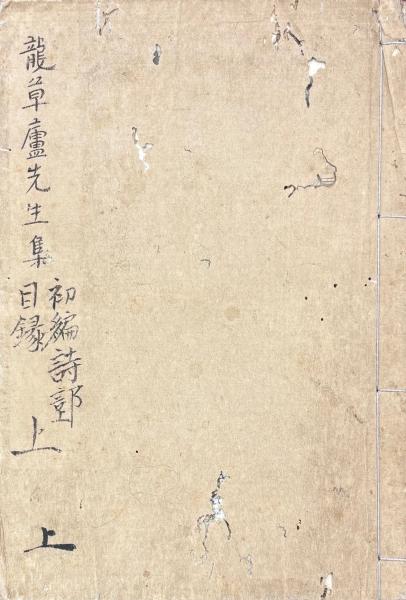 龍草廬先生集
初編詩部
目録
上
上